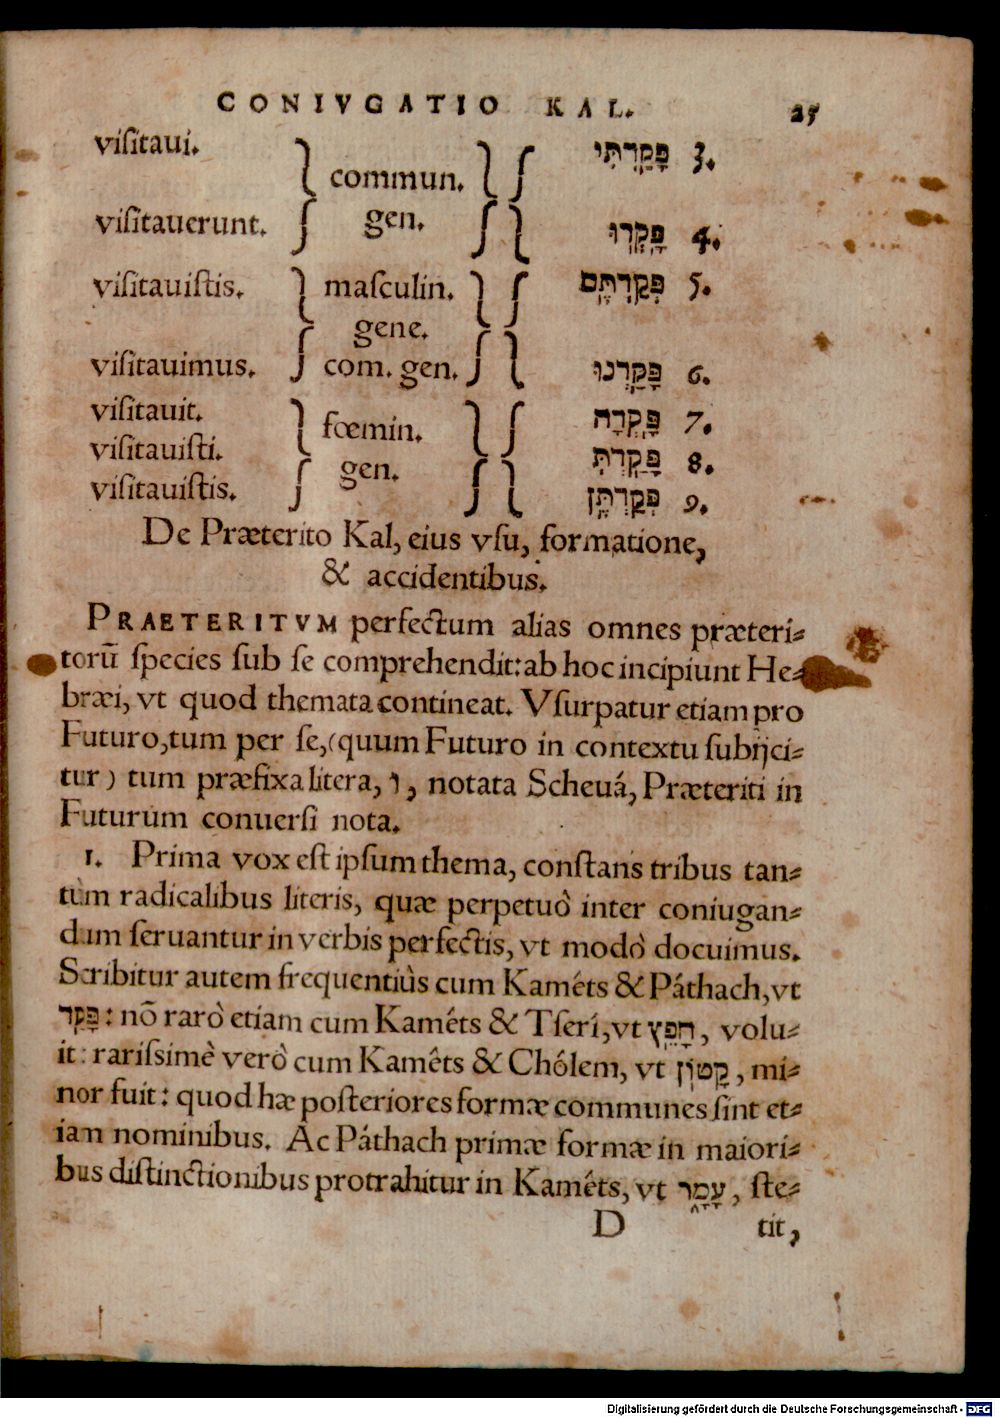 CONIVGATIO KAL. 25
viſitaui. commun. פָּקַדְתִּי 3.
viſitauerunt. gen. פָּקְדוּ 4.
viſitauiſtis. maſculin. פְּקַדְתֶּם 5.
gene.
viſitauimus. com. gen. פָּקַדְנוּ 6.
viſitauit. fœmin. פָּקְדָה 7.
viſitauiſti. פָּקַדְתְּ 8.
gen.
viſitauiſtis. פְּקַדְתֶּן 9.
De Præterito Kal, eius vſu, formatione,
& accidentibus.
PRAETERITVM perfectum alias omnes præteri-
torũ species ſub ſe comprehendit: ab hoc incipiunt He-
bræi, vt quod themata contineat. Vſurpatur etiam pro
Futuro, tum per ſe, (quum Futuro in contextu ſubijci-
tur) tum præfixa litera, ו, notata Scheuá, Præteriti in
Futurum conuerſi nota.
1. Prima vox eſt ipſum thema, conſtans tribus tan-
tùm radicalibus literis, quæ perpetuò inter coniugan-
dum ſeruantur in verbis perfectis, vt modò docuimus.
Scribitur autem frequentiùs cum Kaméts & Páthach, vt
פָּקַד: nõ rarò etiam cum Kaméts & Tſerí, vt חָפֵץ, volu-
it: rariſsimè verò cum Kamêts & Chólem, vt קָטוֹן, mi-
nor fuit: quod hæ poſteriores formæ communes ſint et-
iam nominibus. Ac Páthach primæ formæ in maiori-
bus diſtinctionibus protrahitur in Kaméts, vt עָמָד, ſte-
D tit,
Digitalisierung gefördert durch die Deutsche Forschungsgemeinschaft - DFG